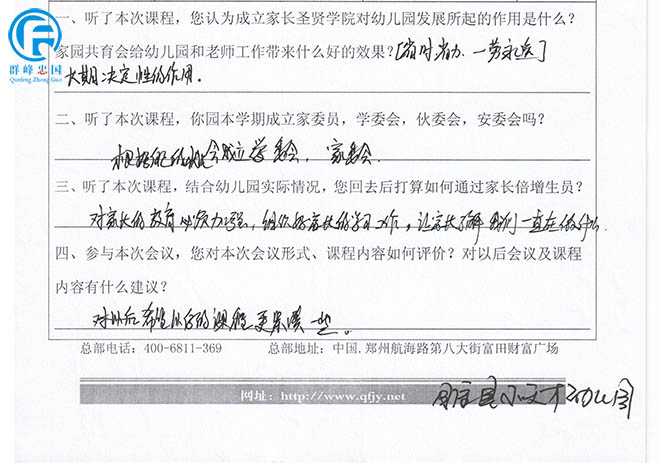 一、听了本次课程，您认为成立家长圣贤学院对幼儿园发展所起的作用是什么？
家园共育会给幼儿园和老师工作带来什么好的效果？[省时省力、一劳永逸]
群峰忠国
Qunfeng Zhong Guo
长期决定性的作用。
二、听了本次课程，你园本学期成立家委员，学委会，伙委会，安委会吗？
会成立学委会、家委会
三、听了本次课程，结合幼儿园实际情况，您回去后打算如何通过家长倍增生员？
对家长的教育必须加强，组织好家长的学习工作。让家长了解我们一直在做什么
四、参与本次会议，您对本次会议形式、课程内容如何评价？对以后会议及课程
内容有什么建议？
对以后希望以后的课程更紧凑一些。
总部电话：400-6811-369 总部地址：中国.郑州航海路第八大街富田财富广场
网址：http://www.qfjy.net